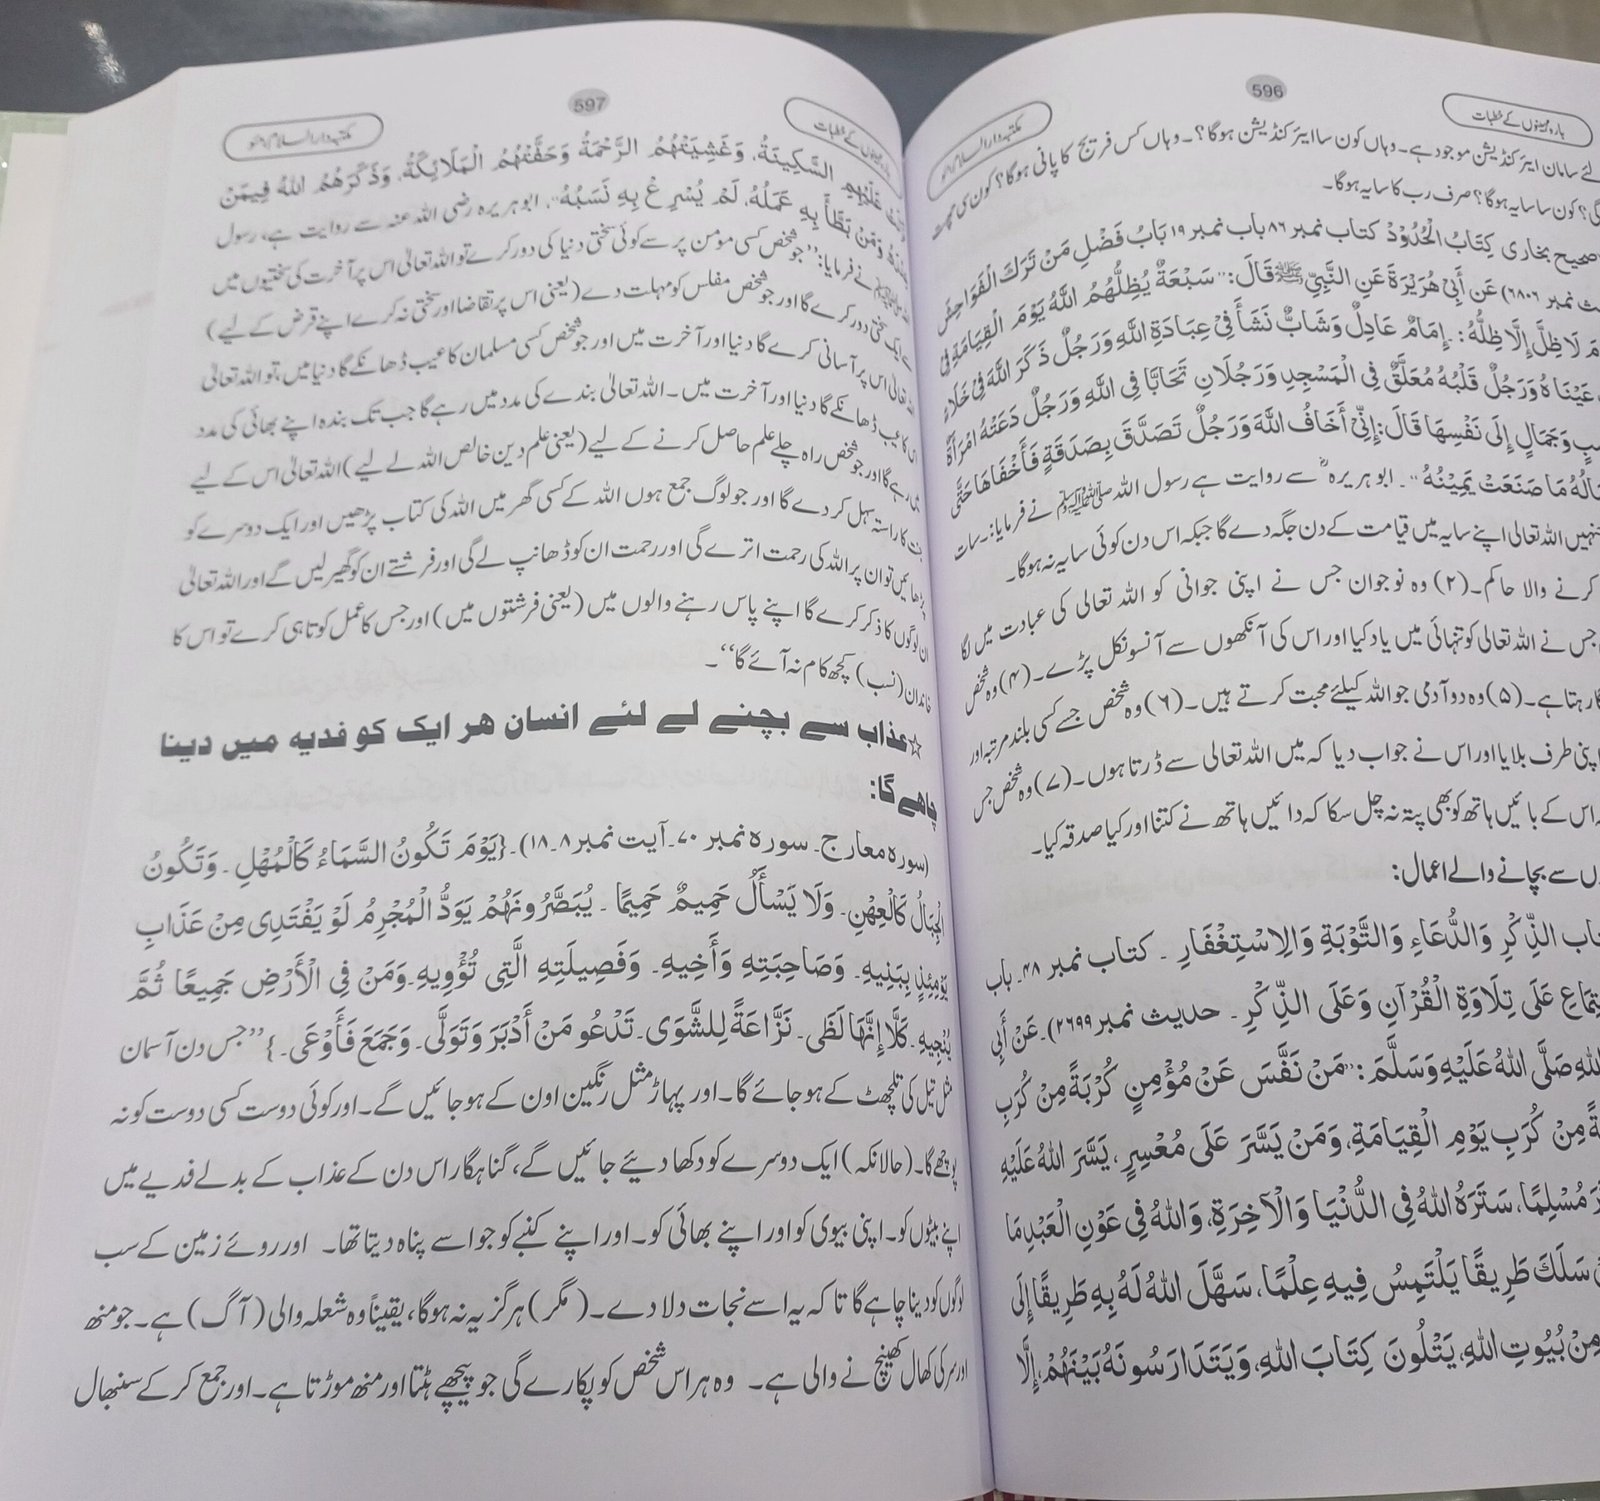 بارہ مہینوں کے خطبات
596
مکتبہ دارالسلام
لئے سامان ایئر کنڈیشن موجود ہے۔ وہاں کون سا ایئر کنڈیشن ہوگا؟۔ وہاں کس فریج کا پانی ہوگا؟ کون سی چھت
گی؟ کون سا سایہ ہوگا؟ صرف رب کا سایہ ہوگا۔
صحیح بخاری کِتَابُ الْحُدُوْدْ کتاب نمبر ۸۶ باب نمبر ۱۹ بَابُ فَضْلِ مَنْ تَرَكَ الْفَوَاحِشَ
نمبر ۶۸۰۶) عَنِ أَبِيْ هُرَيْرَةَ عَنِ النَّبِيِّ ﷺ قَالَ: ’’سَبْعَةٌ يُظِلُّهُمُ اللَّهُ يَوْمَ الْقِيَامَةِ فِيْ
لَا ظِلَّ إِلَّا ظِلُّهُ: إِمَامٌ عَادِلٌ وَشَابٌّ نَشَأَ فِيْ عِبَادَةِ اللَّهِ وَرَجُلٌ ذَكَرَ اللَّهَ فِيْ خَلَاءٍ
عَيْنَاهُ وَرَجُلٌ قَلْبُهُ مُعَلَّقٌ فِي الْمَسْجِدِ وَرَجُلَانِ تَحَابَّا فِي اللَّهِ وَرَجُلٌ دَعَتْهُ امْرَأَةٌ
وَجَمَالٍ إِلَى نَفْسِهَا قَالَ: إِنِّيْ أَخَافُ اللَّهَ وَرَجُلٌ تَصَدَّقَ بِصَدَقَةٍ فَأَخْفَاهَا حَتَّى
مَا صَنَعَتْ يَمِيْنُهُ‘‘۔ ابو ہریرہؓ سے روایت ہے رسول اللہ ﷺ نے فرمایا:۔ سات
جنہیں اللہ تعالی اپنے سایہ میں قیامت کے دن جگہ دے گا جبکہ اس دن کوئی سایہ نہ ہوگا۔
کرنے والا حاکم۔ (۲) وہ نوجوان جس نے اپنی جوانی کو اللہ تعالی کی عبادت میں لگا
جس نے اللہ تعالی کو تنہائی میں یاد کیا اور اس کی آنکھوں سے آنسو نکل پڑے۔ (۴) وہ شخص
رہتا ہے۔ (۵) وہ دو آدمی جو اللہ کیلئے محبت کرتے ہیں۔ (۶) وہ شخص جسے کسی بلند مرتبہ اور
اپنی طرف بلایا اور اس نے جواب دیا کہ میں اللہ تعالی سے ڈرتا ہوں۔ (۷) وہ شخص جس
اس کے بائیں ہاتھ کو بھی پتہ نہ چل سکا کہ دائیں ہاتھ نے کتنا اور کیا صدقہ کیا۔
سے بچانے والے اعمال:
الذِّكْرِ وَالدُّعَاءِ وَالتَّوْبَةِ وَالِاسْتِغْفَارِ ۔ کتاب نمبر ۴۸۔ باب
عَلَى تِلَاوَةِ الْقُرْآنِ وَعَلَى الذِّكْرِ۔ حدیث نمبر ۲۶۹۹)۔ عَنْ أَبِي
اللهِ صَلَّى اللهُ عَلَيْهِ وَسَلَّمَ: ’’مَنْ نَفَّسَ عَنْ مُؤْمِنٍ كُرْبَةً مِنْ كُرَبِ
مِنْ كُرَبِ يَوْمِ الْقِيَامَةِ، وَمَنْ يَسَّرَ عَلَى مُعْسِرٍ، يَسَّرَ اللهُ عَلَيْهِ
مُسْلِمًا، سَتَرَهُ اللهُ فِي الدُّنْيَا وَالْآخِرَةِ، وَاللهُ فِي عَوْنِ الْعَبْدِ مَا
سَلَكَ طَرِيقًا يَلْتَمِسُ فِيهِ عِلْمًا، سَهَّلَ اللهُ لَهُ بِهِ طَرِيقًا إِلَى
مِنْ بُيُوتِ اللهِ، يَتْلُونَ كِتَابَ اللهِ، وَيَتَدَارَسُونَهُ بَيْنَهُمْ، إِلَّا
بارہ مہینوں کے خطبات
597
مکتبہ دارالسلام
عَلَيْهِمِ السَّكِينَةُ، وَغَشِيَتْهُمُ الرَّحْمَةُ وَحَفَّتْهُمُ الْمَلَائِكَةُ، وَذَكَرَهُمُ اللهُ فِيمَنْ
عِنْدَهُ وَمَنْ بَطَّأَ بِهِ عَمَلُهُ، لَمْ يُسْرِعْ بِهِ نَسَبُهُ‘‘، ابوہریرہ رضی اللہ عنہ سے روایت ہے، رسول
نے فرمایا: ’’جو شخص کسی مومن پر سے کوئی سختی دنیا کی دور کرے تو اللہ تعالیٰ اس پر آخرت کی سختیوں میں
سے ایک سختی دور کرے گا اور جو شخص مفلس کو مہلت دے (یعنی اس پر تقاضا اور سختی نہ کرے اپنے قرض کے لیے)
اللہ تعالیٰ اس پر آسانی کرے گا دنیا اور آخرت میں اور جو شخص کسی مسلمان کا عیب ڈھانکے گا دنیا میں، تو اللہ تعالیٰ
عیب ڈھانکے گا دنیا اور آخرت میں۔ اللہ تعالیٰ بندے کی مدد میں رہے گا جب تک بندہ اپنے بھائی کی مدد
میں رہے گا اور جو شخص راہ چلے علم حاصل کرنے کے لیے (یعنی علم دین خالص اللہ لے لیے) اللہ تعالیٰ اس کے لیے
کا راستہ سہل کر دے گا اور جو لوگ جمع ہوں اللہ کے کسی گھر میں اللہ کی کتاب پڑھیں اور ایک دوسرے کو
پڑھائیں تو ان پر اللہ کی رحمت اترے گی اور رحمت ان کو ڈھانپ لے گی اور فرشتے ان کو گھیر لیں گے اور اللہ تعالیٰ
ان لوگوں کا ذکر کرے گا اپنے پاس رہنے والوں میں (یعنی فرشتوں میں) اور جس کا عمل کوتاہی کرے تو اس کا
خاندان (نسب) کچھ کام نہ آئے گا‘‘۔
☆عذاب سے بچنے لے لئے انسان هر ایک کو فدیه میں دینا
چاہے گا:
(سورہ معارج۔ سورہ نمبر ۷۰۔ آیت نمبر ۸۔۱۸)۔ {يَوْمَ تَكُونُ السَّمَاءُ كَالْمُهْلِ ۔ وَتَكُونُ
الْجِبَالُ كَالْعِهْنِ۔ وَلَا يَسْأَلُ حَمِيمٌ حَمِيمًا ۔ يُبَصَّرُونَهُمْ يَوَدُّ الْمُجْرِمُ لَوْ يَفْتَدِى مِنْ عَذَابِ
يَوْمِئِذٍ بِبَنِيهِ۔ وَصَاحِبَتِهِ وَأَخِيهِ۔ وَفَصِيلَتِهِ الَّتِي تُؤْوِيهِ۔ وَمَنْ فِي الْأَرْضِ جَمِيعًا ثُمَّ
يُنْجِيهِ۔ كَلَّا إِنَّهَا لَظَى۔ نَزَّاعَةً لِلشَّوَى۔ تَدْعُو مَنْ أَدْبَرَ وَتَوَلَّى۔ وَجَمَعَ فَأَوْعَى۔} ’’جس دن آسمان
مثل تیل کی تلچھٹ کے ہو جائے گا۔ اور پہاڑ مثل رنگین اون کے ہو جائیں گے۔ اور کوئی دوست کسی دوست کو نہ
پوچھے گا۔ (حالانکہ) ایک دوسرے کو دکھا دیئے جائیں گے، گناہگار اس دن کے عذاب کے بدلے فدیے میں
اپنے بیٹوں کو۔ اپنی بیوی کو اور اپنے بھائی کو۔ اور اپنے کنبے کو جو اسے پناہ دیتا تھا۔ اور روئے زمین کے سب
لوگوں کو دینا چاہے گا تا کہ یہ اسے نجات دلا دے۔ (مگر) ہرگز یہ نہ ہوگا، یقیناً وہ شعلہ والی (آگ) ہے۔ جو منھ
اور سر کی کھال کھینچ نے والی ہے۔ وہ ہر اس شخص کو پکارے گی جو پیچھے ہٹتا اور منھ موڑتا ہے۔ اور جمع کر کے سنبھال